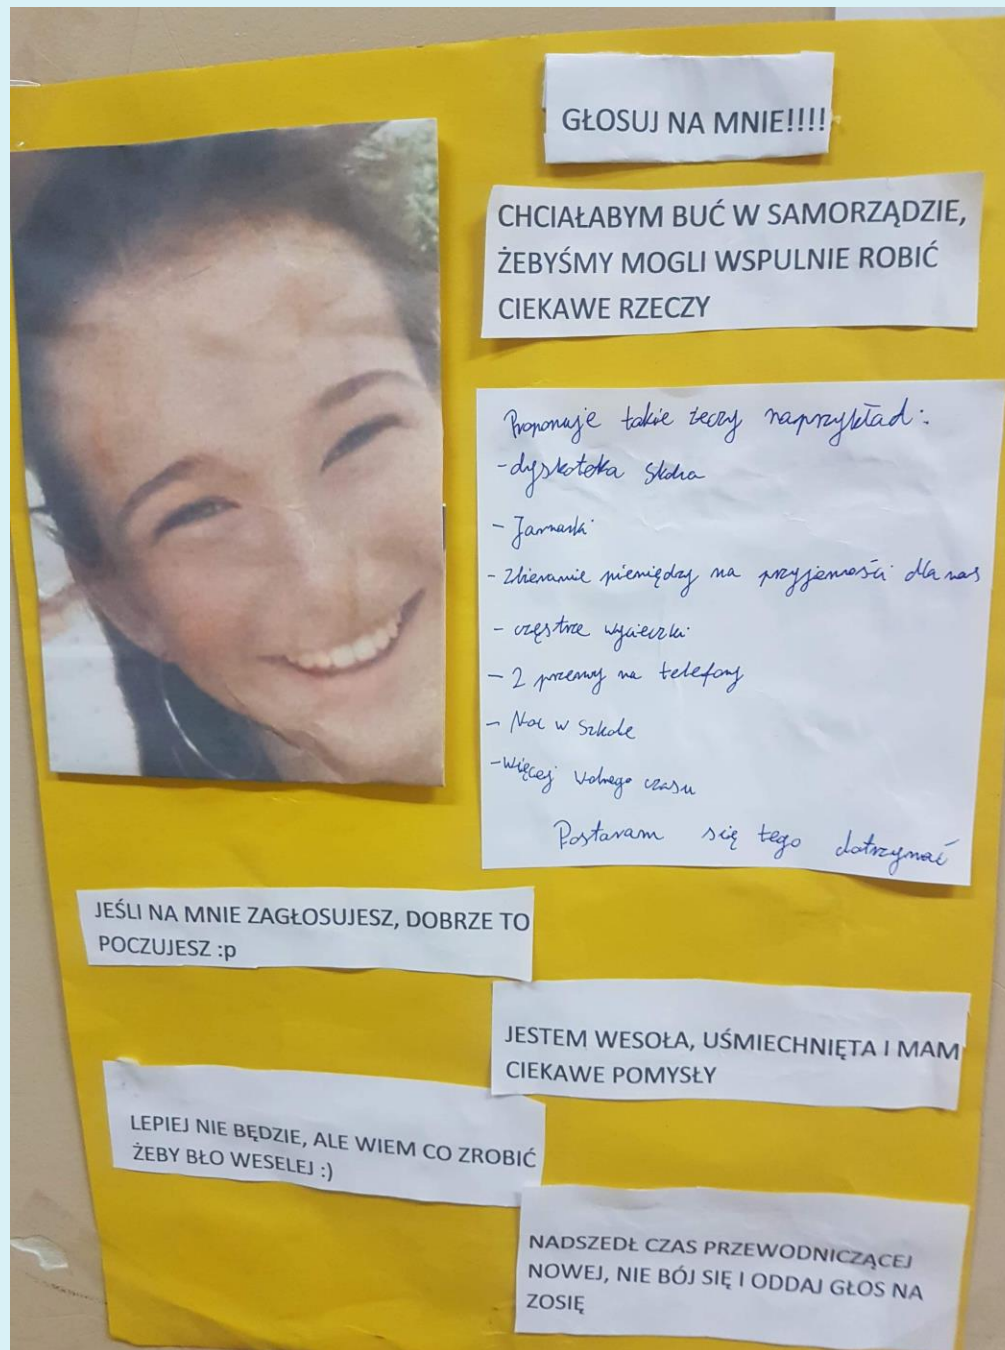 GŁOSUJ NA MNIE!!!!
CHCIAŁABYM BUĆ W SAMORZĄDZIE,
ŻEBYŚMY MOGLI WSPULNIE ROBIĆ
CIEKAWE RZECZY
Proponuje takie żeczy naprzykład:
- dyskoteka
- Jarmarki
- Zbieranie pieniędzy na przyjemości dla nas
- częstrze wycieczki
- 2 przerwy na telefony
- Noc w Szkole
- Więcej Wolnego czasu
Postaram się tego dotrzymać
JEŚLI NA MNIE ZAGŁOSUJESZ, DOBRZE TO
POCZUJESZ :p
JESTEM WESOŁA, UŚMIECHNIĘTA I MAM
CIEKAWE POMYSŁY
LEPIEJ NIE BĘDZIE, ALE WIEM CO ZROBIĆ
ŻEBY BŁO WESELEJ :)
NADSZEDŁ CZAS PRZEWODNICZĄCEJ
NOWEJ, NIE BÓJ SIĘ I ODDAJ GŁOS NA
ZOSIĘ